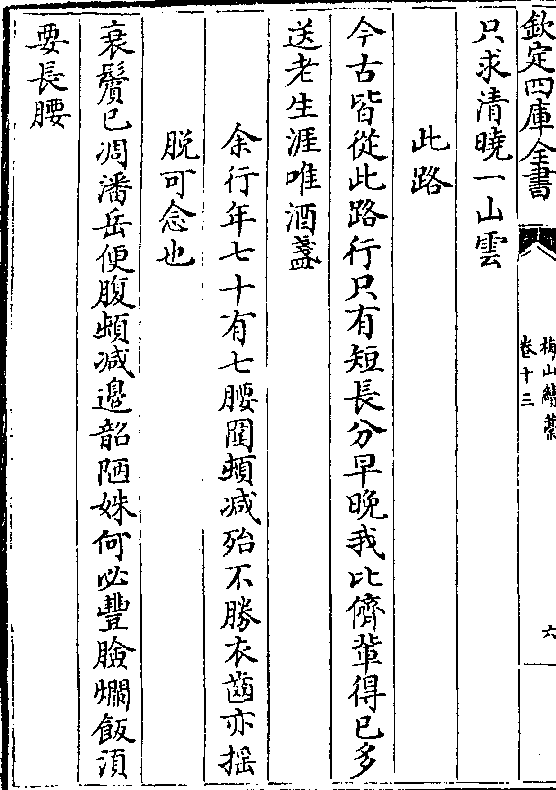 欽定四庫全書
梅山續藁
卷十三
六
只求清曉一山雲
此路
今古皆從此路行只有短長分早晚我比儕輩得已多
送老生涯唯酒盞
余行年七十有七腰圍頓減殆不勝衣齒亦揺
脱可念也
衰鬢已凋潘岳便腹頓减邉韶陋姝何必豐臉爛飯湏
要長腰